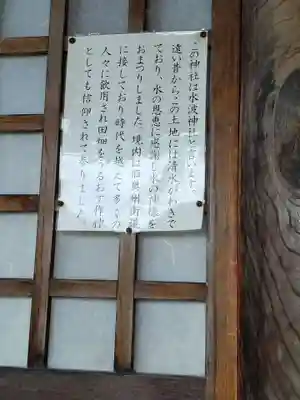 この神社は水波神社と言います。
遠い昔からこの土地には清水がわきで
ており、水の恩恵に感謝し水の神様を
おまつりしました。境内は旧奥州街道
に接しており時代を越えて多くの
人々に飲用され田畑をうるおす作神
としても信仰されて参りました